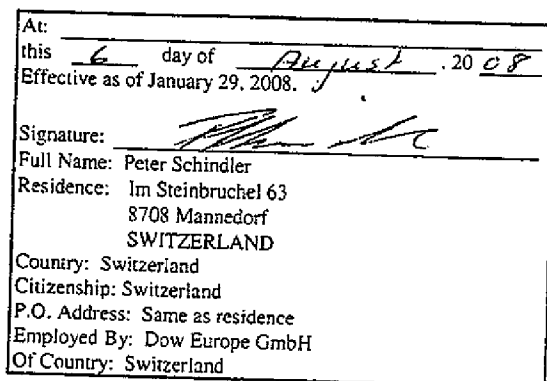 At:
this 6 day of August, 20 08
Effective as of January 29, 2008.
Signature:
Full Name: Peter Schindler
Residence: Im Steinbruchel 63
8708 Mannedorf
SWITZERLAND
Country: Switzerland
Citizenship: Switzerland
P.O. Address: Same as residence
Employed By: Dow Europe GmbH
Of Country: Switzerland